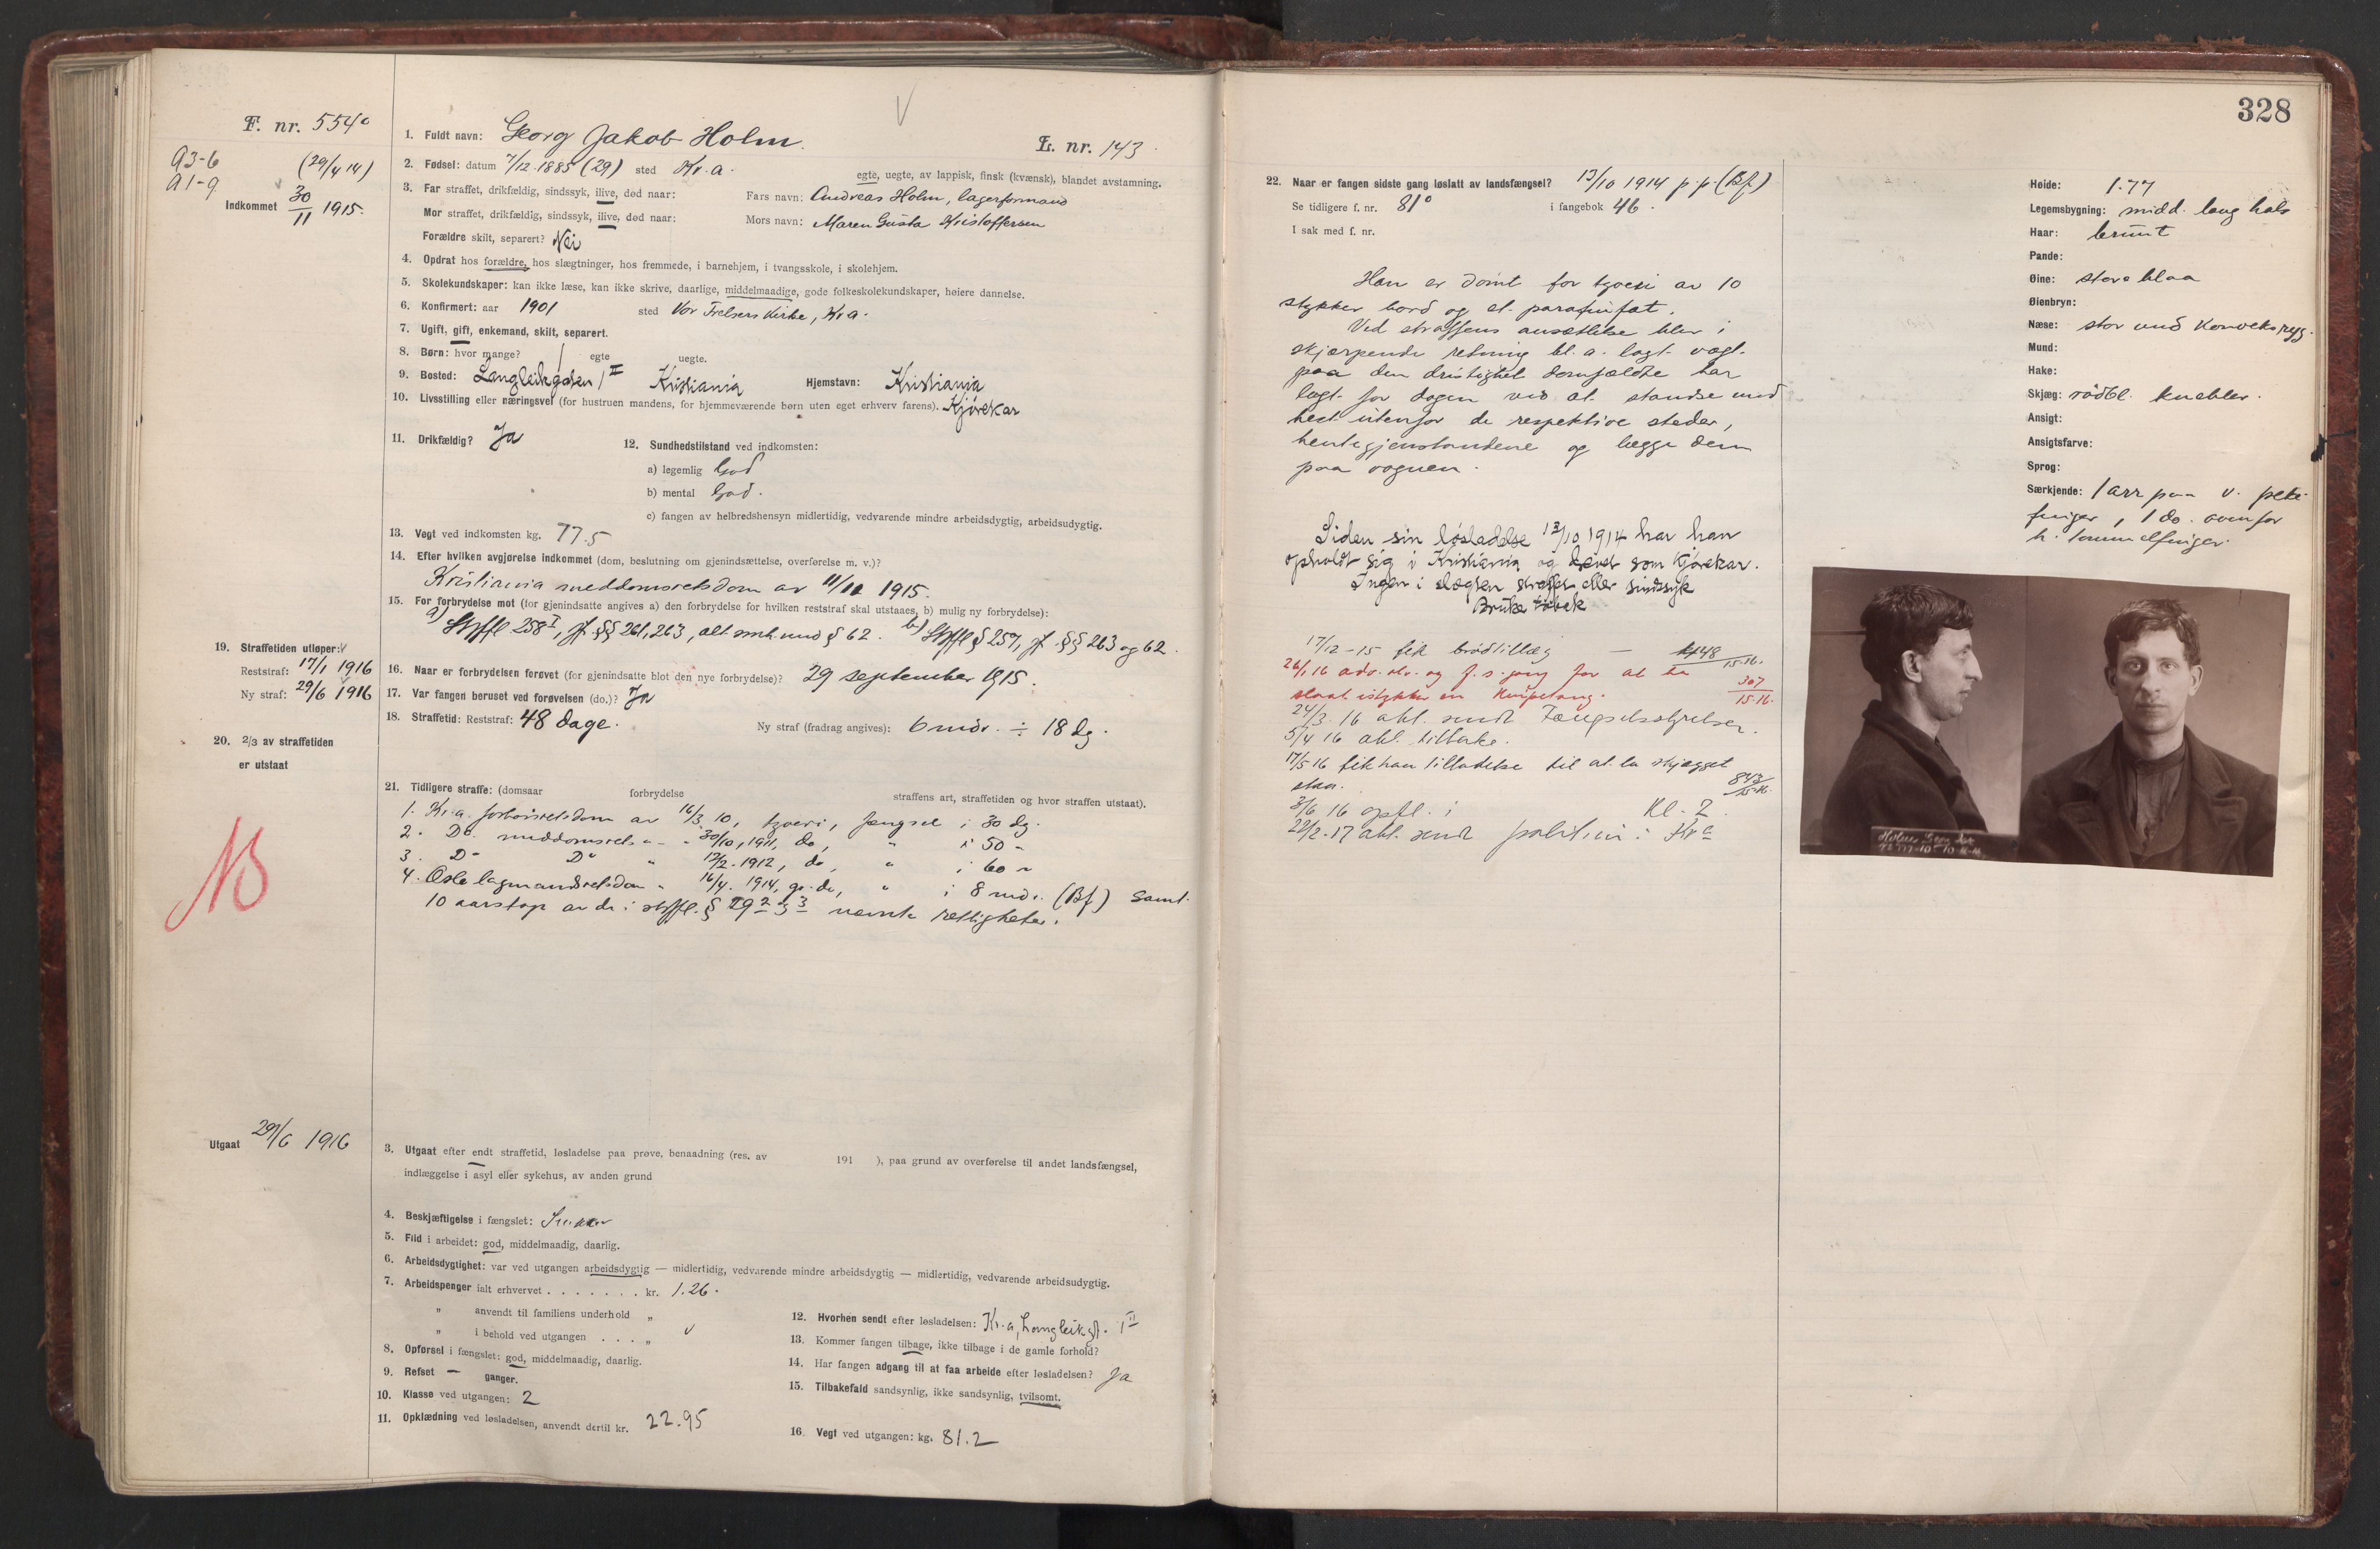 F. nr. 554°
A3-6
A1-9
(29/4 14)
Indkommet 30/11 1915.
1. Fuldt navn: Georg Jakob Holm.
L. nr. 143
2. Fødsel: datum 7/12-1885 (29) sted Kr.a.
egte, uegte, av lappisk, finsk (kvænsk), blandet avstamning.
3. Far straffet, drikfældig, sindssyk, ilive, død naar: Fars navn: Andreas Holm, lagerformand
Mor straffet, drikfældig, sindssyk, ilive, død naar: Mors navn: Maren Gusta Kristoffersen
Forældre skilt, separert? Nei
4. Opdrat hos forældre, hos slægtninger, hos fremmede, i barnehjem, i tvangsskole, i skolehjem.
5. Skolekundskaper: kan ikke læse, kan ikke skrive, daarlige, middelmaadige, gode folkeskolekundskaper, høiere dannelse.
6. Konfirmert: aar 1901 sted Vor Frelsers Kirke, Kr.a.
7. Ugift, gift, enkemand, skilt, separert.
8. Børn: hvor mange? 1 egte uegte.
9. Bosted: Langleikgaten 1 II Kristiania Hjemstavn: Kristiania
10. Livsstilling eller næringsvei (for hustruen mandens, for hjemmeværende børn uten eget erhverv farens). Kjørekar
11. Drikfældig? Ja
12. Sundhedstilstand ved indkomsten:
a) legemlig God
b) mental God.
c) fangen av helbredshensyn midlertidig, vedvarende mindre arbeidsdygtig, arbeidsudygtig.
13. Vegt ved indkomsten kg. 77.5
14. Efter hvilken avgjørelse indkommet (dom, beslutning om gjenindsættelse, overførelse m. v.)?
Kristiania meddomsretsdom av 11/11 1915.
15. For forbrydelse mot (for gjenindsatte angives a) den forbrydelse for hvilken reststraf skal utstaaes, b) mulig ny forbrydelse):
a) Strffl 258 I, jf. §§ 261, 263, alt smh. med § 62. b) Strffl § 257, jf. §§ 263 og 62.
19. Straffetiden utløper:
Reststraf: 17/1 1916
Ny straf: 29/6 1916
16. Naar er forbrydelsen forøvet (for gjenindsatte blot den nye forbrydelse)? 29 september 1915.
17. Var fangen beruset ved forøvelsen (do.)? Ja
18. Straffetid: Reststraf: 48 dage. Ny straf (fradrag angives): 6 mdr. ÷ 18 dg.
20. 2/3 av straffetiden
er utstaat
21. Tidligere straffe: (domsaar forbrydelse straffens art, straffetiden og hvor straffen utstaat).
1. Kr.a. forhørsretsdom av 16/3 10, tyveri, fængsel i 30 dg.
2. Do. meddomsrets " - " 30/10, 1911, do, " i 50 -
3. Do Do " 12/2-1912, do, " i 60 "
4. Oslo lagmandsretsdom " 16/4. 1914, gr. do, " i 8 mdr. (Bf) samt
10 aarstap av de i strffl. § 29 2 3 3 nævnte rettigheter.
Utgaat 29/6 1916
3. Utgaat efter endt straffetid, løsladelse paa prøve, benaadning (res. av 191 ), paa grund av overførelse til andet landsfængsel,
indlæggelse i asyl eller sykehus, av anden grund
4. Beskjæftigelse i fængslet:
5. Flid i arbeidet: god, middelmaadig, daarlig.
6. Arbeidsdygtighet: var ved utgangen arbeidsdygtig — midlertidig, vedvarende mindre arbeidsdygtig — midlertidig, vedvarende arbeidsudygtig.
7. Arbeidspenger ialt erhvervet . . . . . . . kr. 1.26.
" anvendt til familiens underhold "
" i behold ved utgangen . . . "
8. Opførsel i fængslet: god, middelmaadig, daarlig.
9. Refset — ganger.
10. Klasse ved utgangen: 2
11. Opklædning ved løsladelsen, anvendt dertil kr. 22.95
12. Hvorhen sendt efter løsladelsen: Kr.a, Langleikgt. 1 II
13. Kommer fangen tilbage, ikke tilbage i de gamle forhold?
14. Har fangen adgang til at faa arbeide efter løsladelsen? Ja
15. Tilbakefald sandsynlig, ikke sandsynlig, tvilsomt.
16. Vegt ved utgangen: kg. 81.2
328
22. Naar er fangen sidste gang løslatt av landsfængsel? 13/10 1914 p.p. (Bf)
Se tidligere f. nr. 81° i fangebok 46.
I sak med f. nr.
Han er dømt for tyveri av 10
stykker bord og et parafinfat.
Ved straffens ansættelse blev i
skjærpende retning bl. a. lagt vægt
paa den dristighet domfældte har
lagt for dagen ved at standse med
hest utenfor de respektive steder,
hente gjenstandene og lægge dem
paa vognen.
Siden sin løsladelse 13/10 1914 har han
opholdt sig i Kristiania og levet som kjørekar.
Ingen i slægten straffet eller sindssyk
Bruker tobak
17/12-15 fik brødtillæg — 448/15-16.
26/1 16 adv. for at ha 307/15-16.
slaat istykker en
24/3. 16 akt. sendt Fængselsstyrelsen.
5/4 16 akt. tilbake.
17/5 16 fik han tilladelse til at la skjægget
staa. 843/15-16
3/6 16 opfl. i Kl. 2.
22/2-17 akt. sendt politiet i Kr.a
Høide: 1.77
Legemsbygning: midd. lang hals
Haar: brunt
Pande:
Øine: store blaa
Øienbryn:
Næse: stor med konveks ryg.
Mund:
Hake:
Skjæg: rødbl. knebler.
Ansigt:
Ansigtsfarve:
Sprog:
Særkjende: 1 arr paa v. peke-
finger, 1 do. ovenfor
h. tommelfinger.